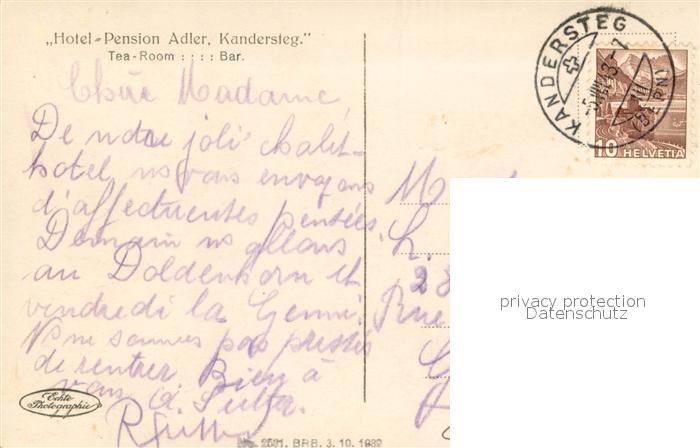 „Hotel-Pension Adler, Kandersteg.”
Tea-Room : : : : Bar.
KANDERSTEG
(BERN)
10 HELVETIA
Chère Madame,
De notre joli chalet-
hotel ns vous envoyons
d'affectueuses pensées.
Demain ns allons
au Doldenhorn et
vendredi la Gemmi.
Ns ne sommes pas pressés
de rentrer. Bien à
vous
28
Rue
privacy protection
Datenschutz
Echte
Photographie
No. 2581. BRB. 3. 10. 1939